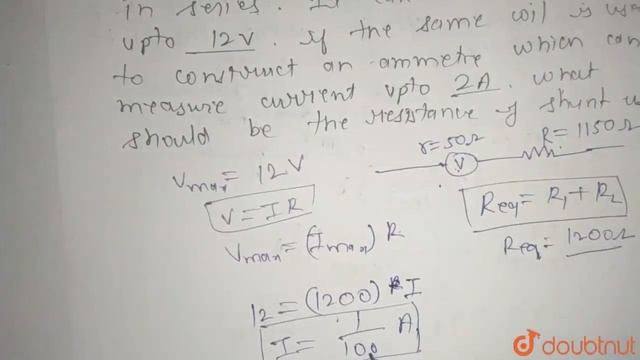 in series. It can
upto 12V. if the same coil is use
to construct an ammetre which can
measure current upto 2A. what
should be the resistance of shunt u
Vmax = 12V
V = IR
Vmax = (Imax) R
12 = (1200) I
I = 1/100 A
r = 50Ω
R = 1150Ω
V
Req = R1 + R2
Req = 1200Ω
doubtnut